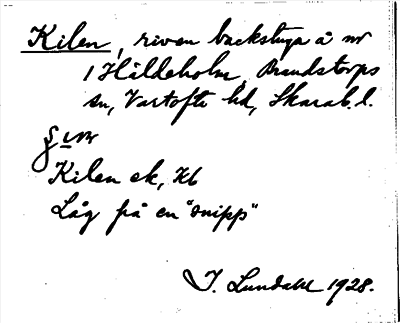 Kilen, riven backstuga å nr
1 Hålldeholm, Brandstorps
sn, Vartofta hd, Skarab. l.
Kilen ek, Kb
Låg på en "snipp"
I. Lundahl 1928.